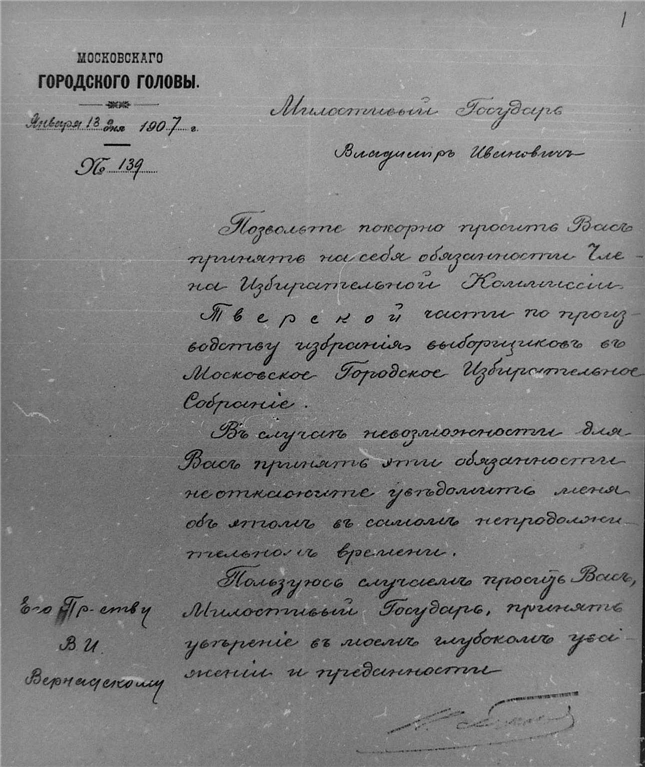 1
МОСКОВСКАГО
ГОРОДСКОГО ГОЛОВЫ.
Января 13 дня 1907 г.
№ 139
Милостивый Государь
Владимiръ Ивановичъ
Позвольте покорно просить Васъ
принять на себя обязанности Чле-
на Избирательной Коммиссiи
Тверской части по произ-
водству избранiя выборщиковъ въ
Московское Городское Избирательное
Собранiе.
Въ случаѣ невозможности для
Васъ принять эти обязанности
не откажите увѣдомить меня
объ этомъ въ самомъ непродолжи-
тельномъ времени.
Пользуюсь случаемъ просить Васъ,
Милостивый Государь, принять
увѣренiе въ моемъ глубокомъ ува-
женiи и преданности
Е-го Пр-ству
В. И.
Вернадскому